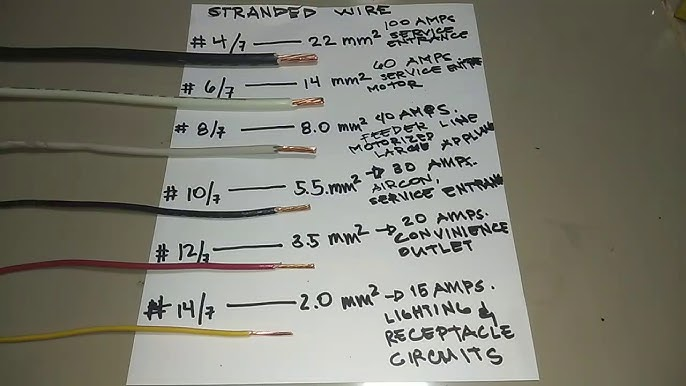 STRANDED WIRE
# 4/7 — 22 mm² 100 AMPS
SERVICE
ENTRANCE
# 6/7 — 14 mm² 60 AMPS
SERVICE
MOTOR
# 8/7 — 8.0 mm² 40 AMPS.
FEEDER LINE
MOTORIZED
LARGE
# 10/7 — 5.5.mm² → 30 AMPS.
AIRCON,
SERVICE
# 12/7 — 3.5 mm² → 20 AMPS.
CONVINIENCE
OUTLET
# 14/7 — 2.0 mm² → 15 AMPS.
LIGHTING &
RECEPTACLE
CIRCUITS